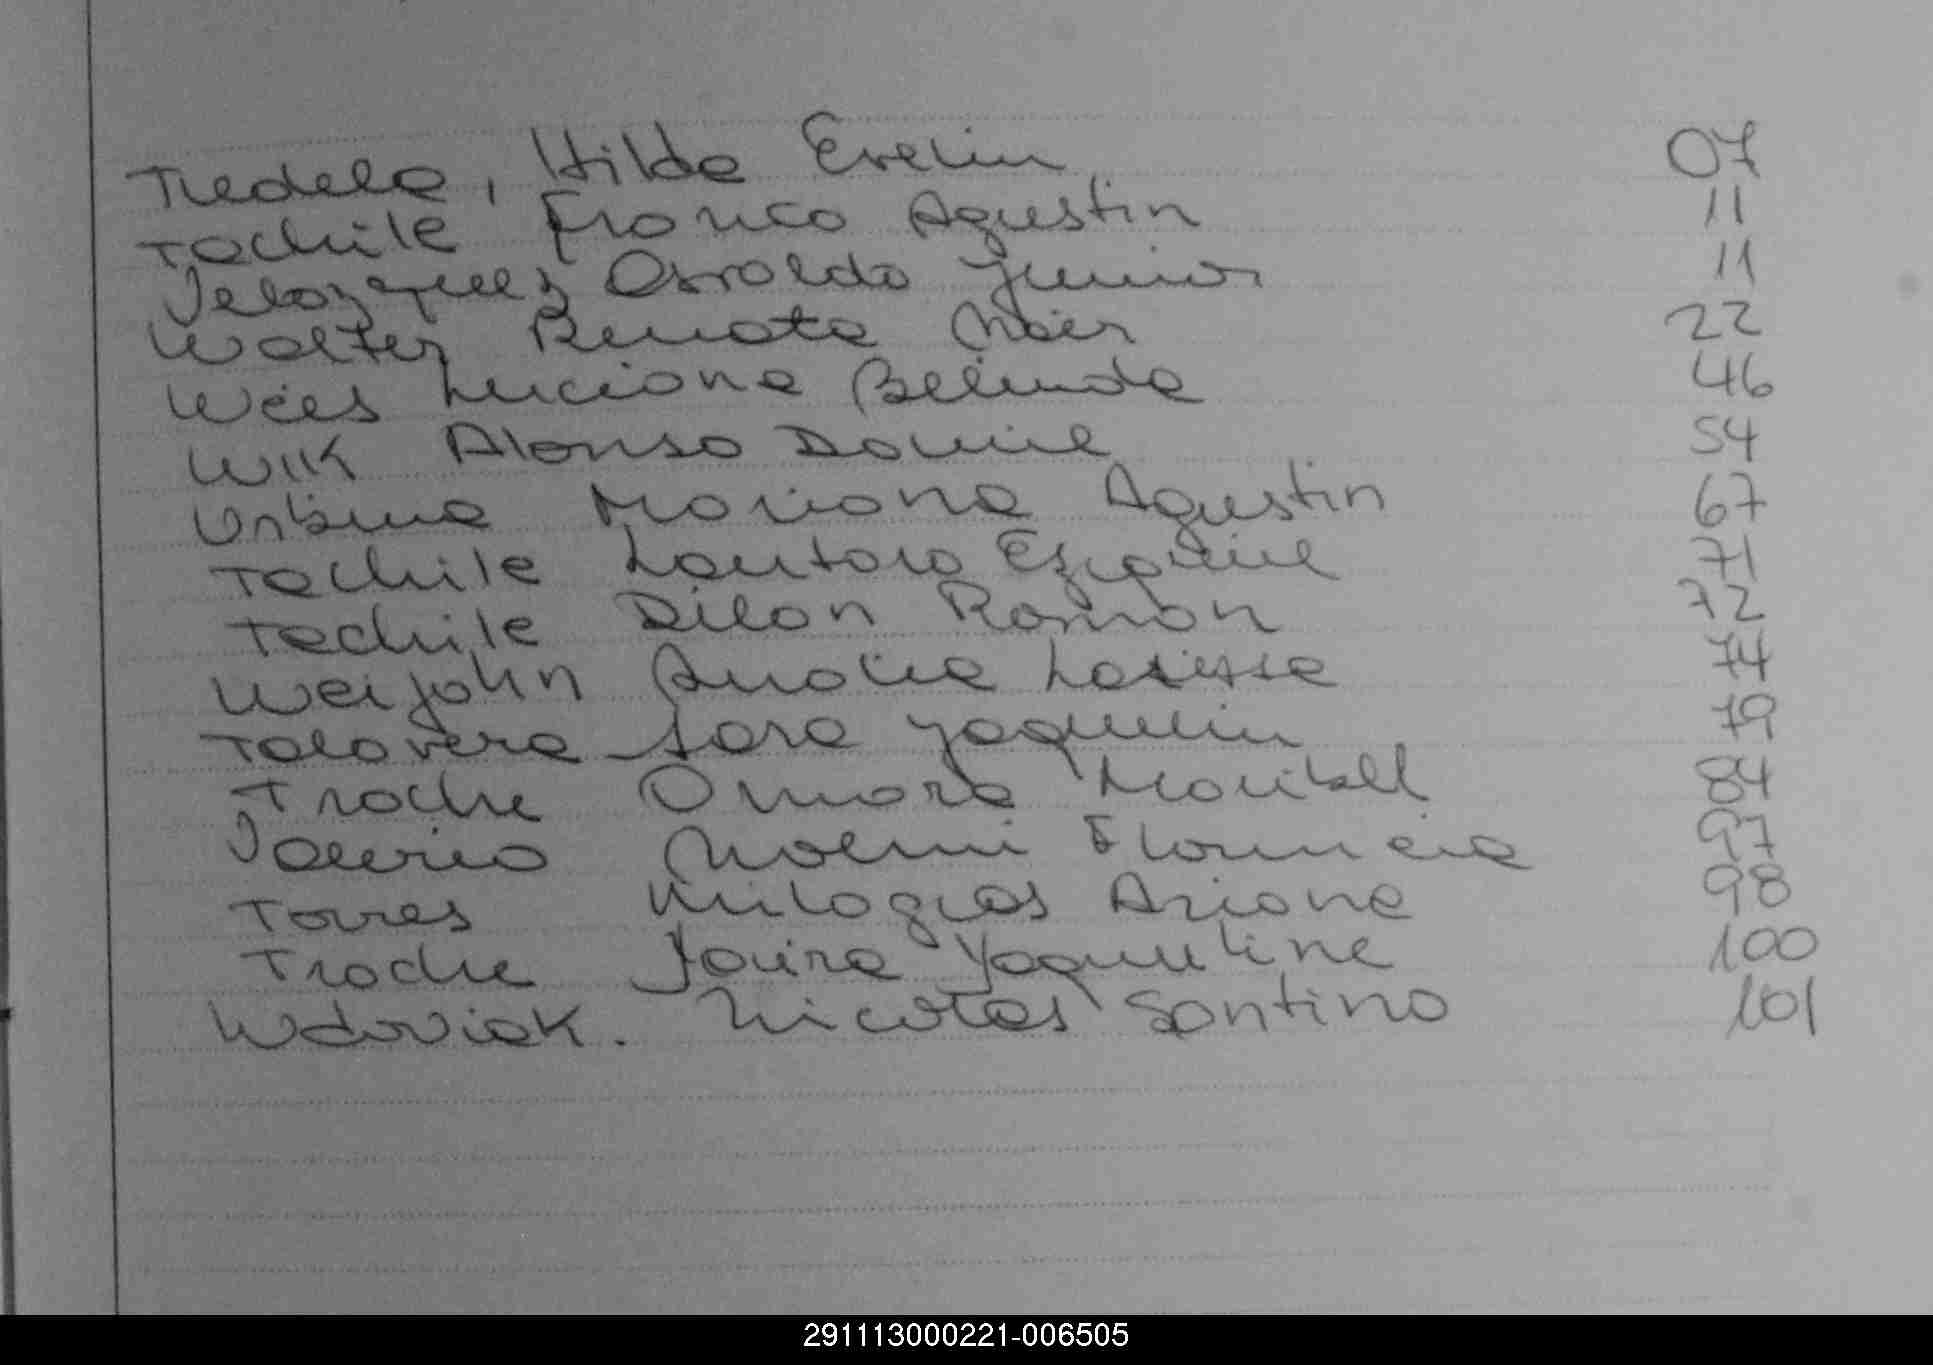 Tudela, Hilda Evelin 07
Tachile Franco Agustin 11
Velazquez Osvaldo Junior 11
Walter Renata Naier 22
Weiss Luciana Belinda 46
Wilk Alonso Daniel 54
Urbina Mariana Agustin 67
Tachile Lautaro Ezquiel 71
Tachile Dilan Ramon 72
Weijohn Analia 74
Talavera Sara Yaquelin 79
Troche Omara Maribell 84
Noemi Florencia 97
Torres Milagros Ariana 98
Troche Yaira Yaqueline 100
Wdoviak. Nicolas Santino 101
291113000221-006505